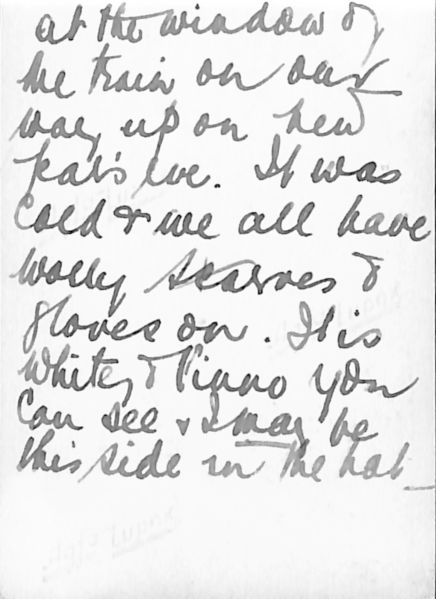 at the window of
the train on our
way up on New
Year's eve. It was
Cold & we all have
Wolly scarves &
gloves on. It is
White, & you
Can see & I may be
this side in the hat